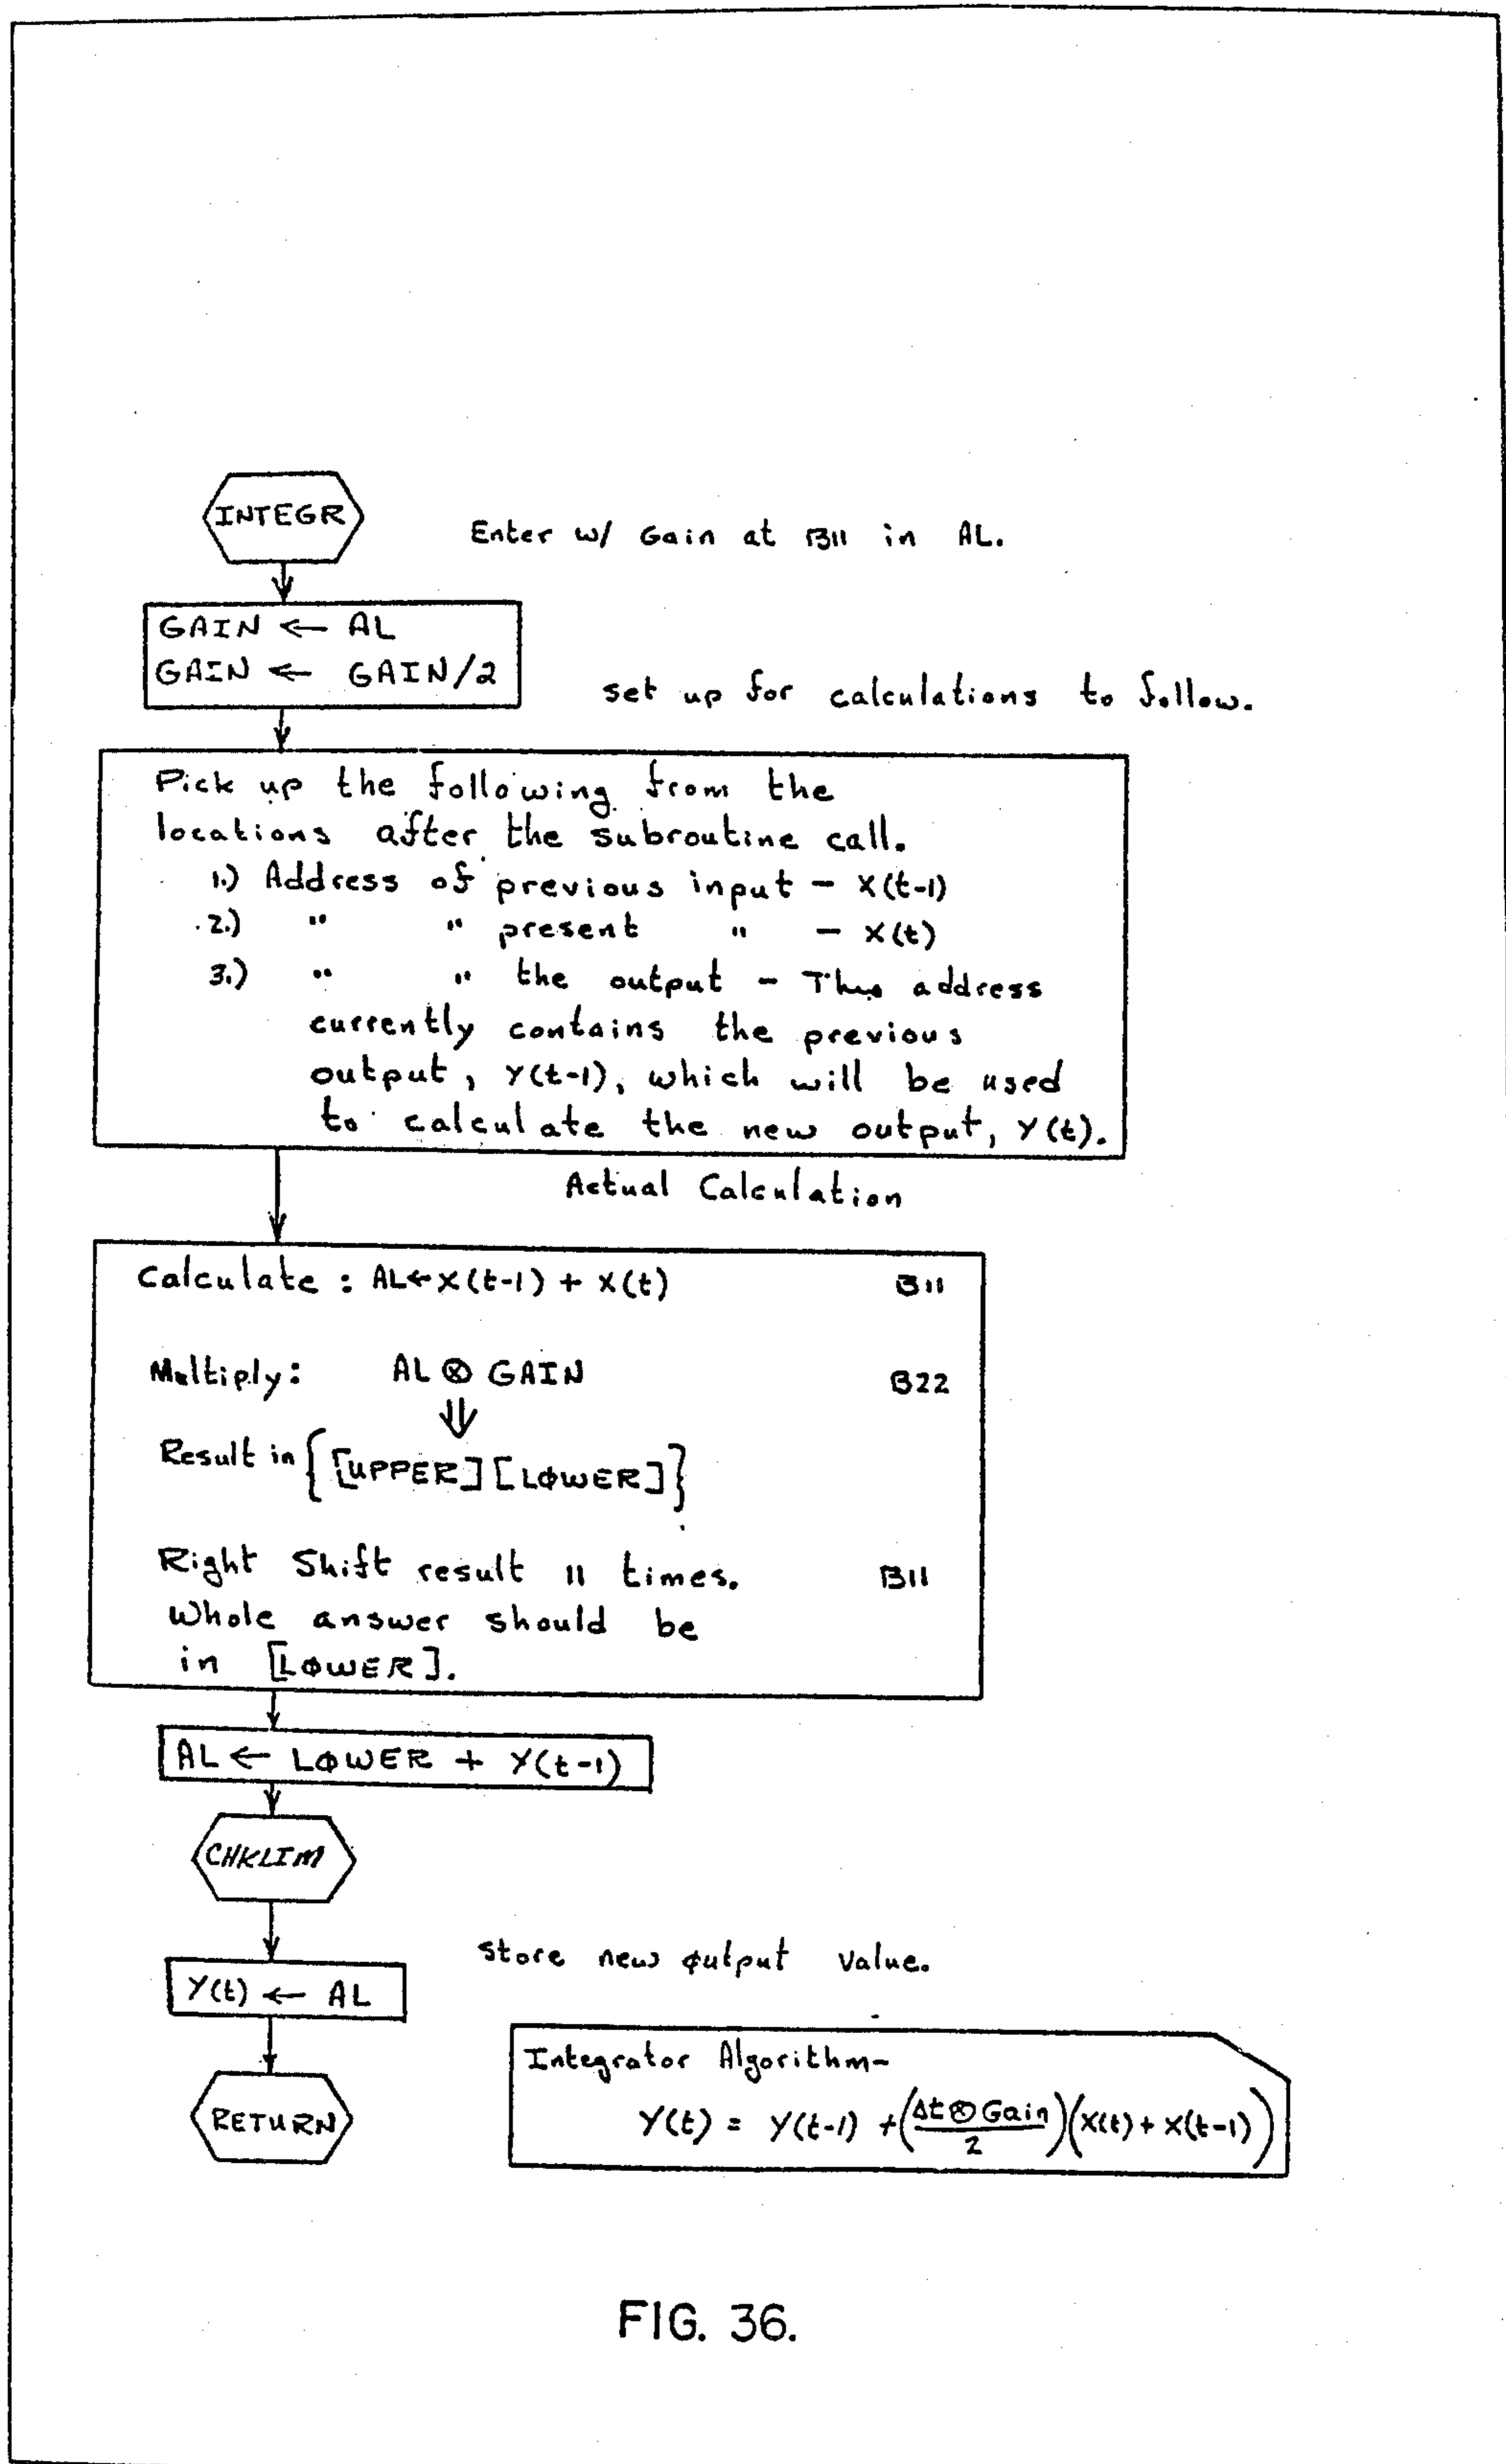 INTEGR
Enter w/ Gain at B11 in AL.
GAIN ← AL
GAIN ← GAIN/2
set up for calculations to follow.
Pick up the following from the
locations after the subroutine call.
1.) Address of previous input - X(t-1)
2.) " " present " - X(t)
3.) " " the output - This address
currently contains the previous
output, Y(t-1), which will be used
to calculate the new output, Y(t).
Actual Calculation
Calculate : AL←X(t-1) + X(t) B11
Multiply: AL ⊗ GAIN B22
⇓
Result in {[UPPER][LØWER]}
Right Shift result 11 times. B11
Whole answer should be
in [LØWER].
AL ← LØWER + Y(t-1)
CHKLIM
Store new øutput value.
Y(t) ← AL
RETURN
Integrator Algorithm-
Y(t) = Y(t-1) + (Δt⊗Gain/2)(X(t) + X(t-1))
FIG. 36.